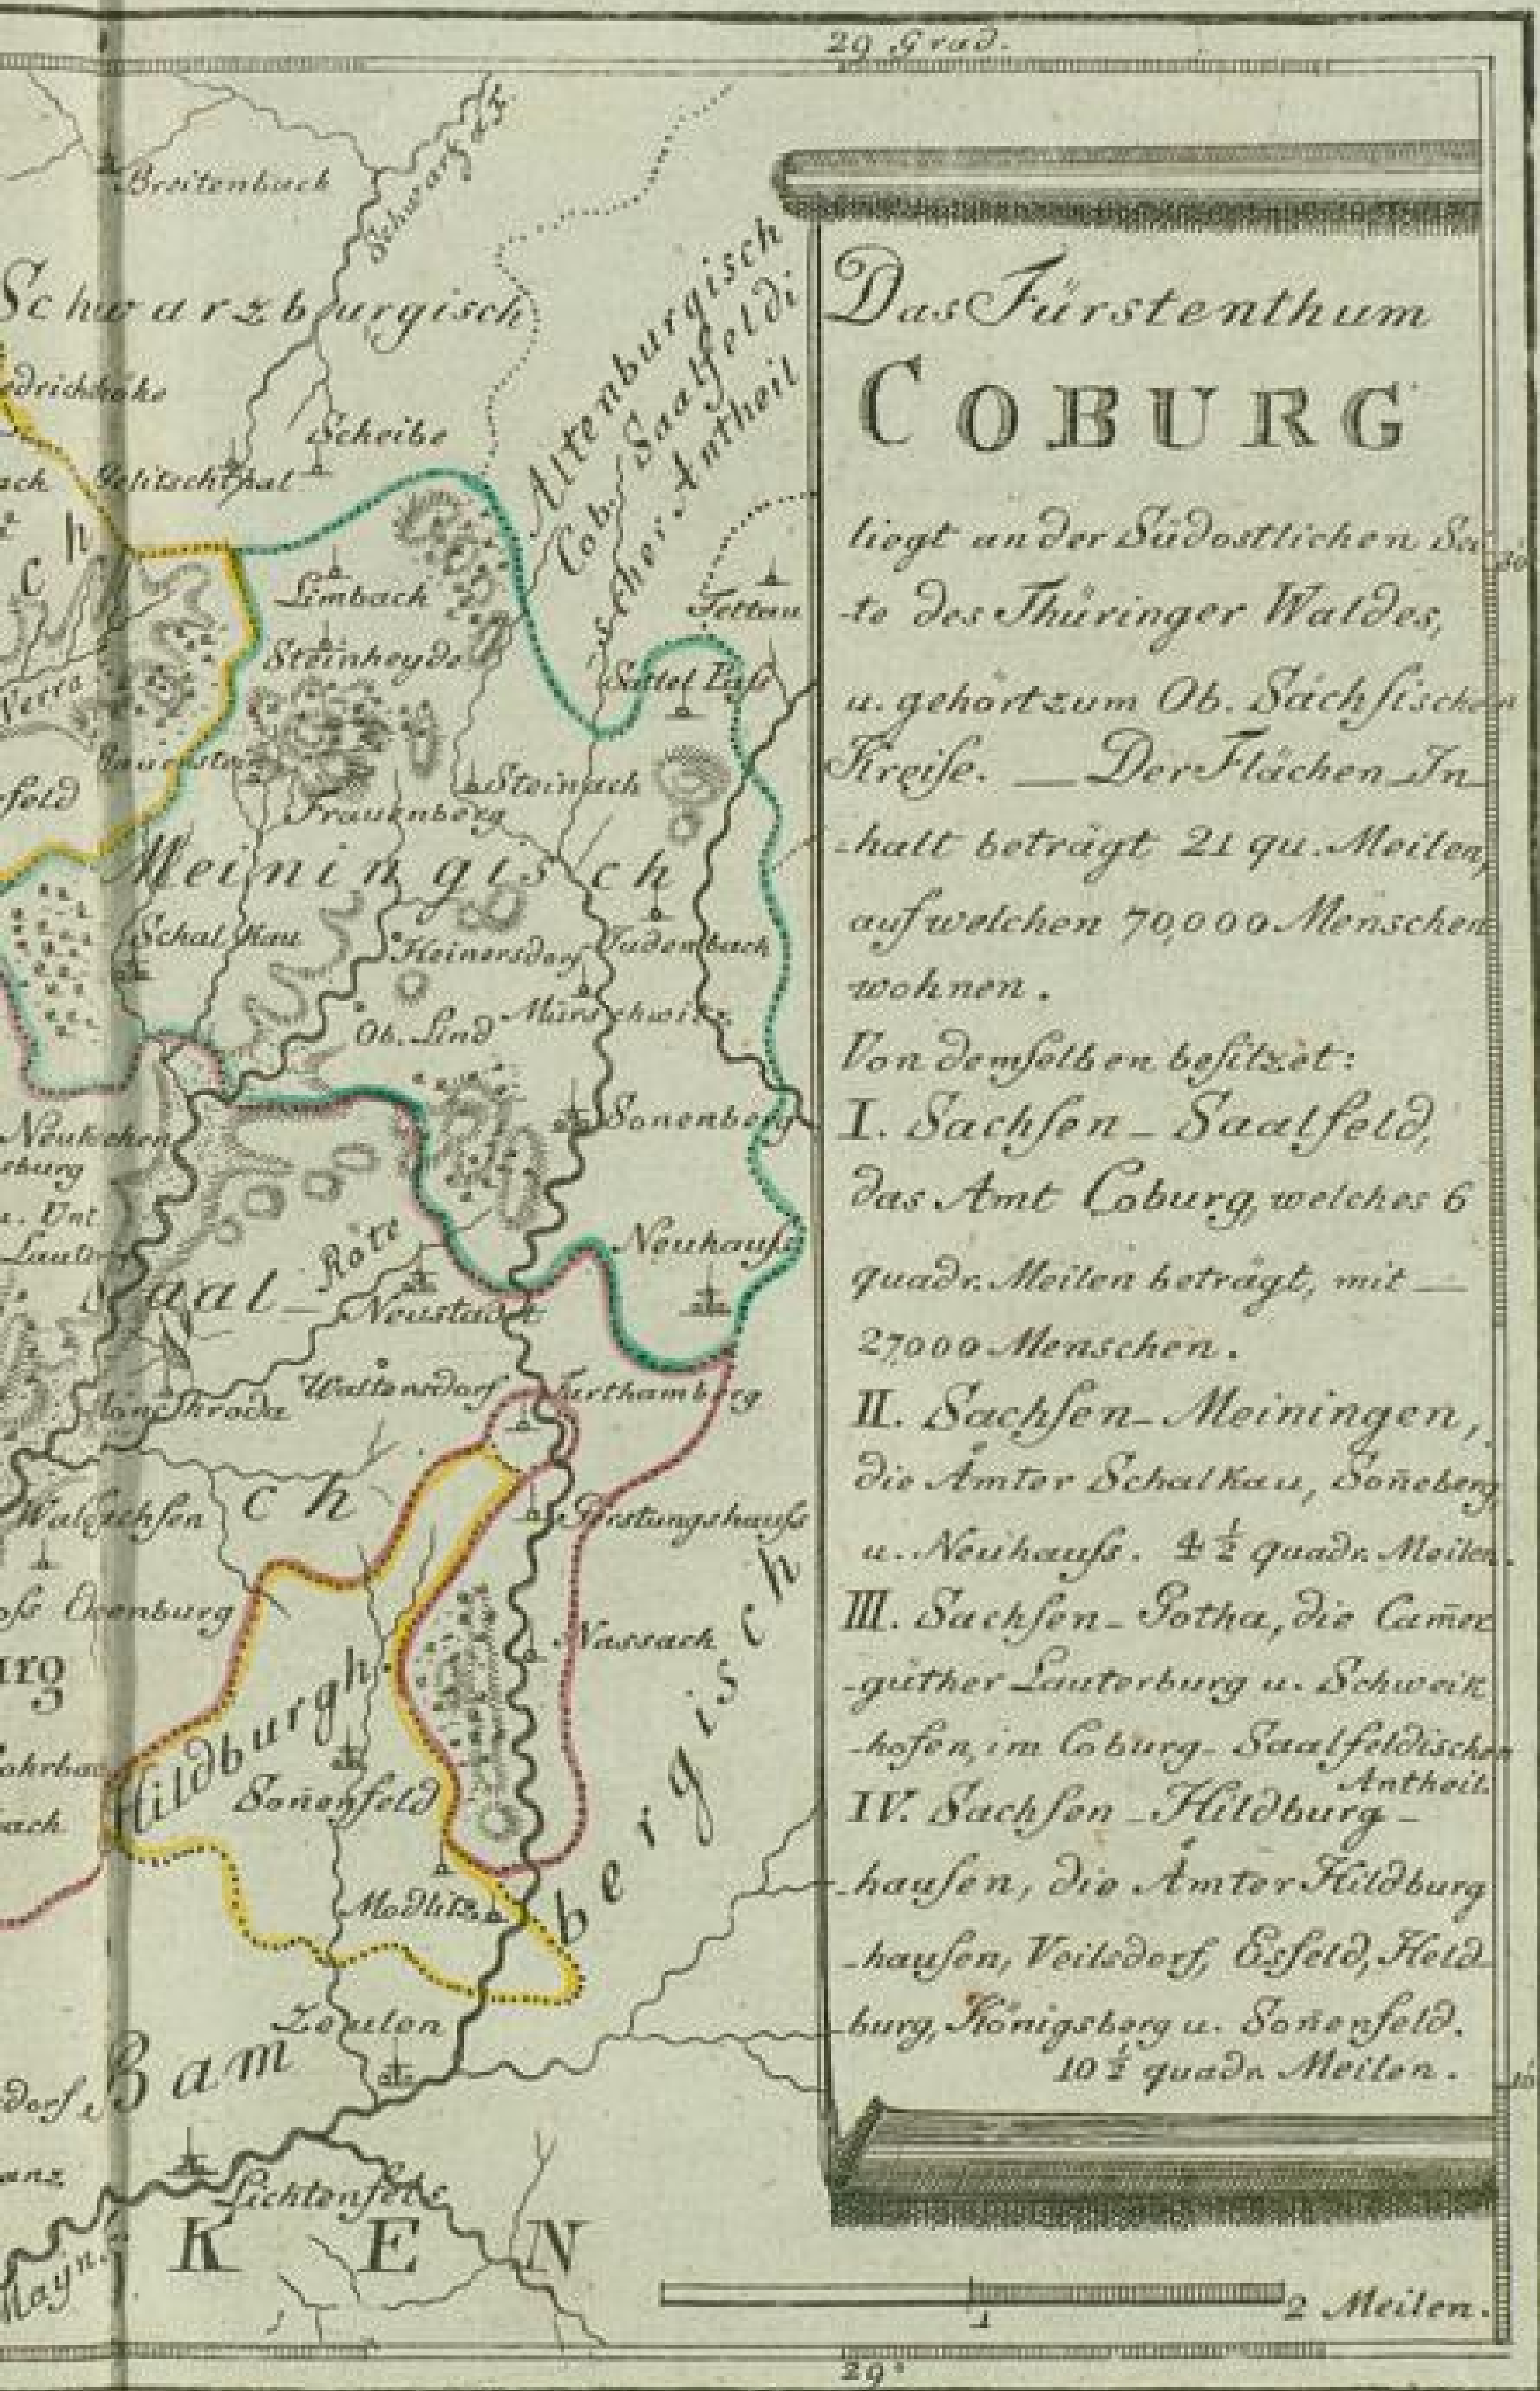 29 Grad.
Breitenbach
Schwarza
Schwarzburgisch
Scheibe
Altenburgisch
Cob. Saalfeldi
scher Antheil
Limbach
Steinheyde
Tettau
Sattel Pass
Steinach
Frauenberg
feld
Meiningisch
Schalkau
Heinersdorf
Judembach
Ob. Lind
Mürschwitz
Neukichen
sburg
Sonenberg
u. Unt
Lauter
Röte
Neuhauſs
Saal-
Neustadt
Waltersdorf
Furthamberg
Mönchroda
Walsachsen
ch
Forstungshauſs
Nassach
Hildburgh.
Soñenfeld
bergisch
Modlitz
Zeulen
Bam
dorf
anz
Lichtenfels
KEN
Mayn.
Das Fürstenthum
COBURG
liegt an der Südostlichen Sei
-te des Thüringer Waldes,
u. gehört zum Ob. Sächſischen
Kreiſe. — Der Flächen-In-
-halt beträgt 21 qu. Meilen,
auf welchen 70,000 Menschen
wohnen.
Von demſelben beſitzet:
I. Sachſen-Saalfeld,
das Amt Coburg, welches 6
quadr. Meilen beträgt, mit —
27,000 Menschen.
II. Sachſen-Meiningen,
die Ämter Schalkau, Soñeberg,
u. Neuhauſs. 4½ quadr. Meilen.
III. Sachſen-Gotha, die Cam̄er
-güther Lauterburg u. Schweik
-hofen, im Coburg-Saalfeldischen
Antheil.
IV. Sachſen-Hildburg-
-hauſen, die Ämter Hildburg
-hauſen, Veilsdorf, Eisfeld, Held-
burg, Königsberg u. Soñenfeld.
10½ quadr. Meilen.
1
2 Meilen.
29°